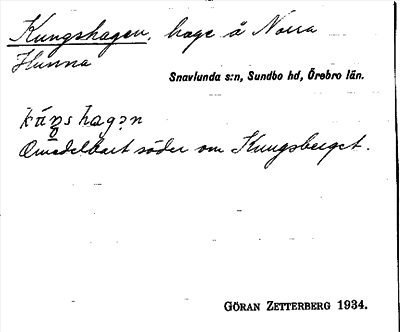 Kungshagen, hage å Norra
Hunna
Snavlunda s:n, Sundbo hd, Örebro län.
Omedelbart söder om Kungsberget.
GÖRAN ZETTERBERG 1934.